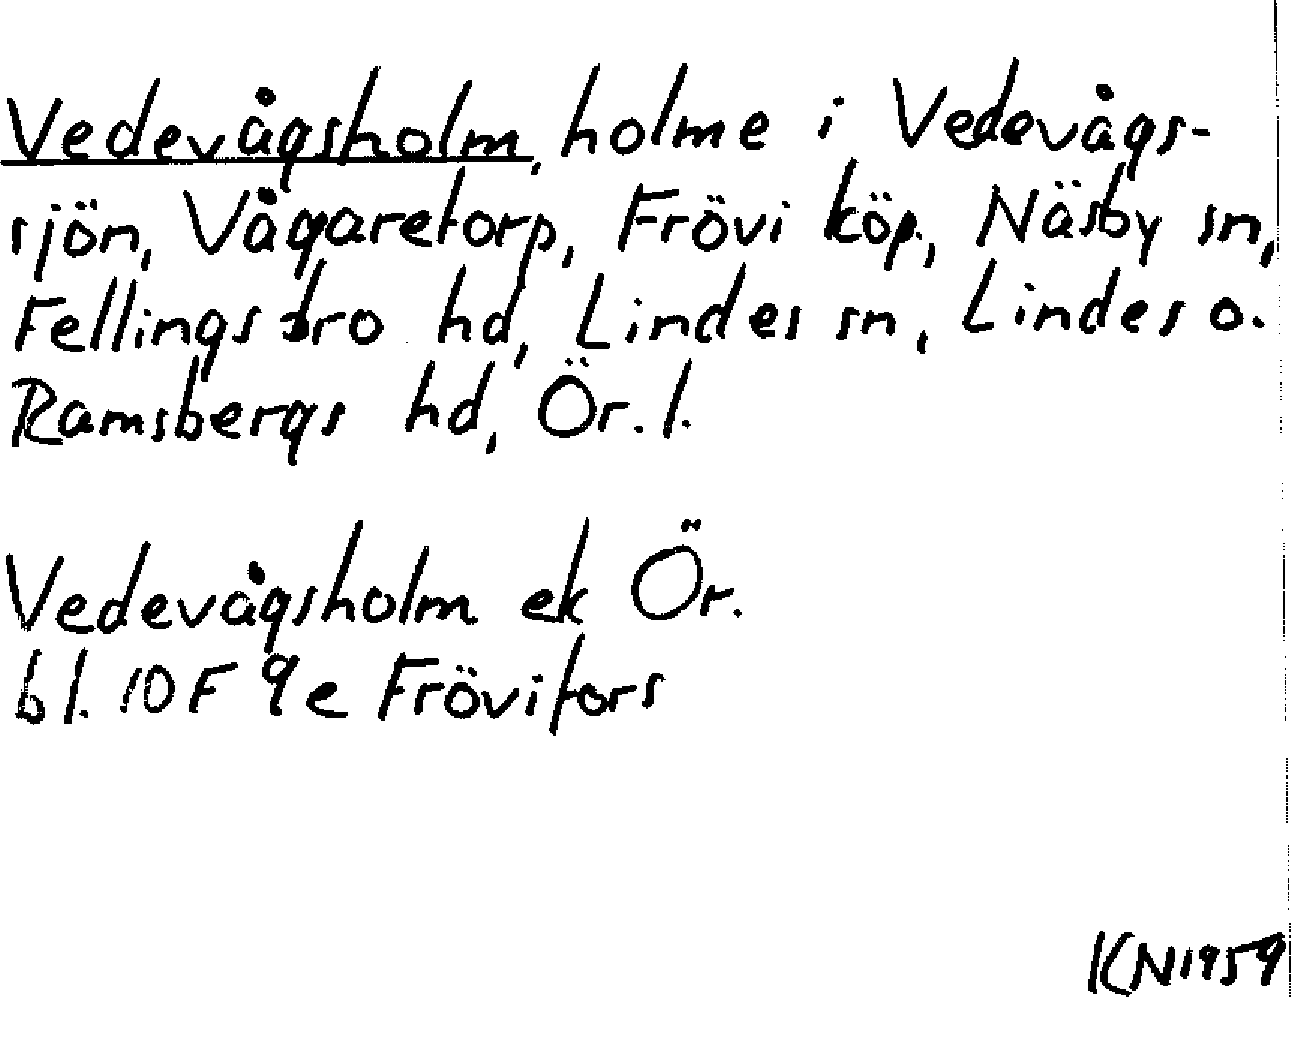 Vedevågsholm, holme i Vedevågs-
sjön, Vågaretorp, Frövi köp., Näsby sn,
Fellingsbro hd, Lindes sn, Lindes o.
Ramsbergs hd, Ör. l.
Vedevågsholm ek Ör.
bl. 10F 9e Frövifors
KN1959